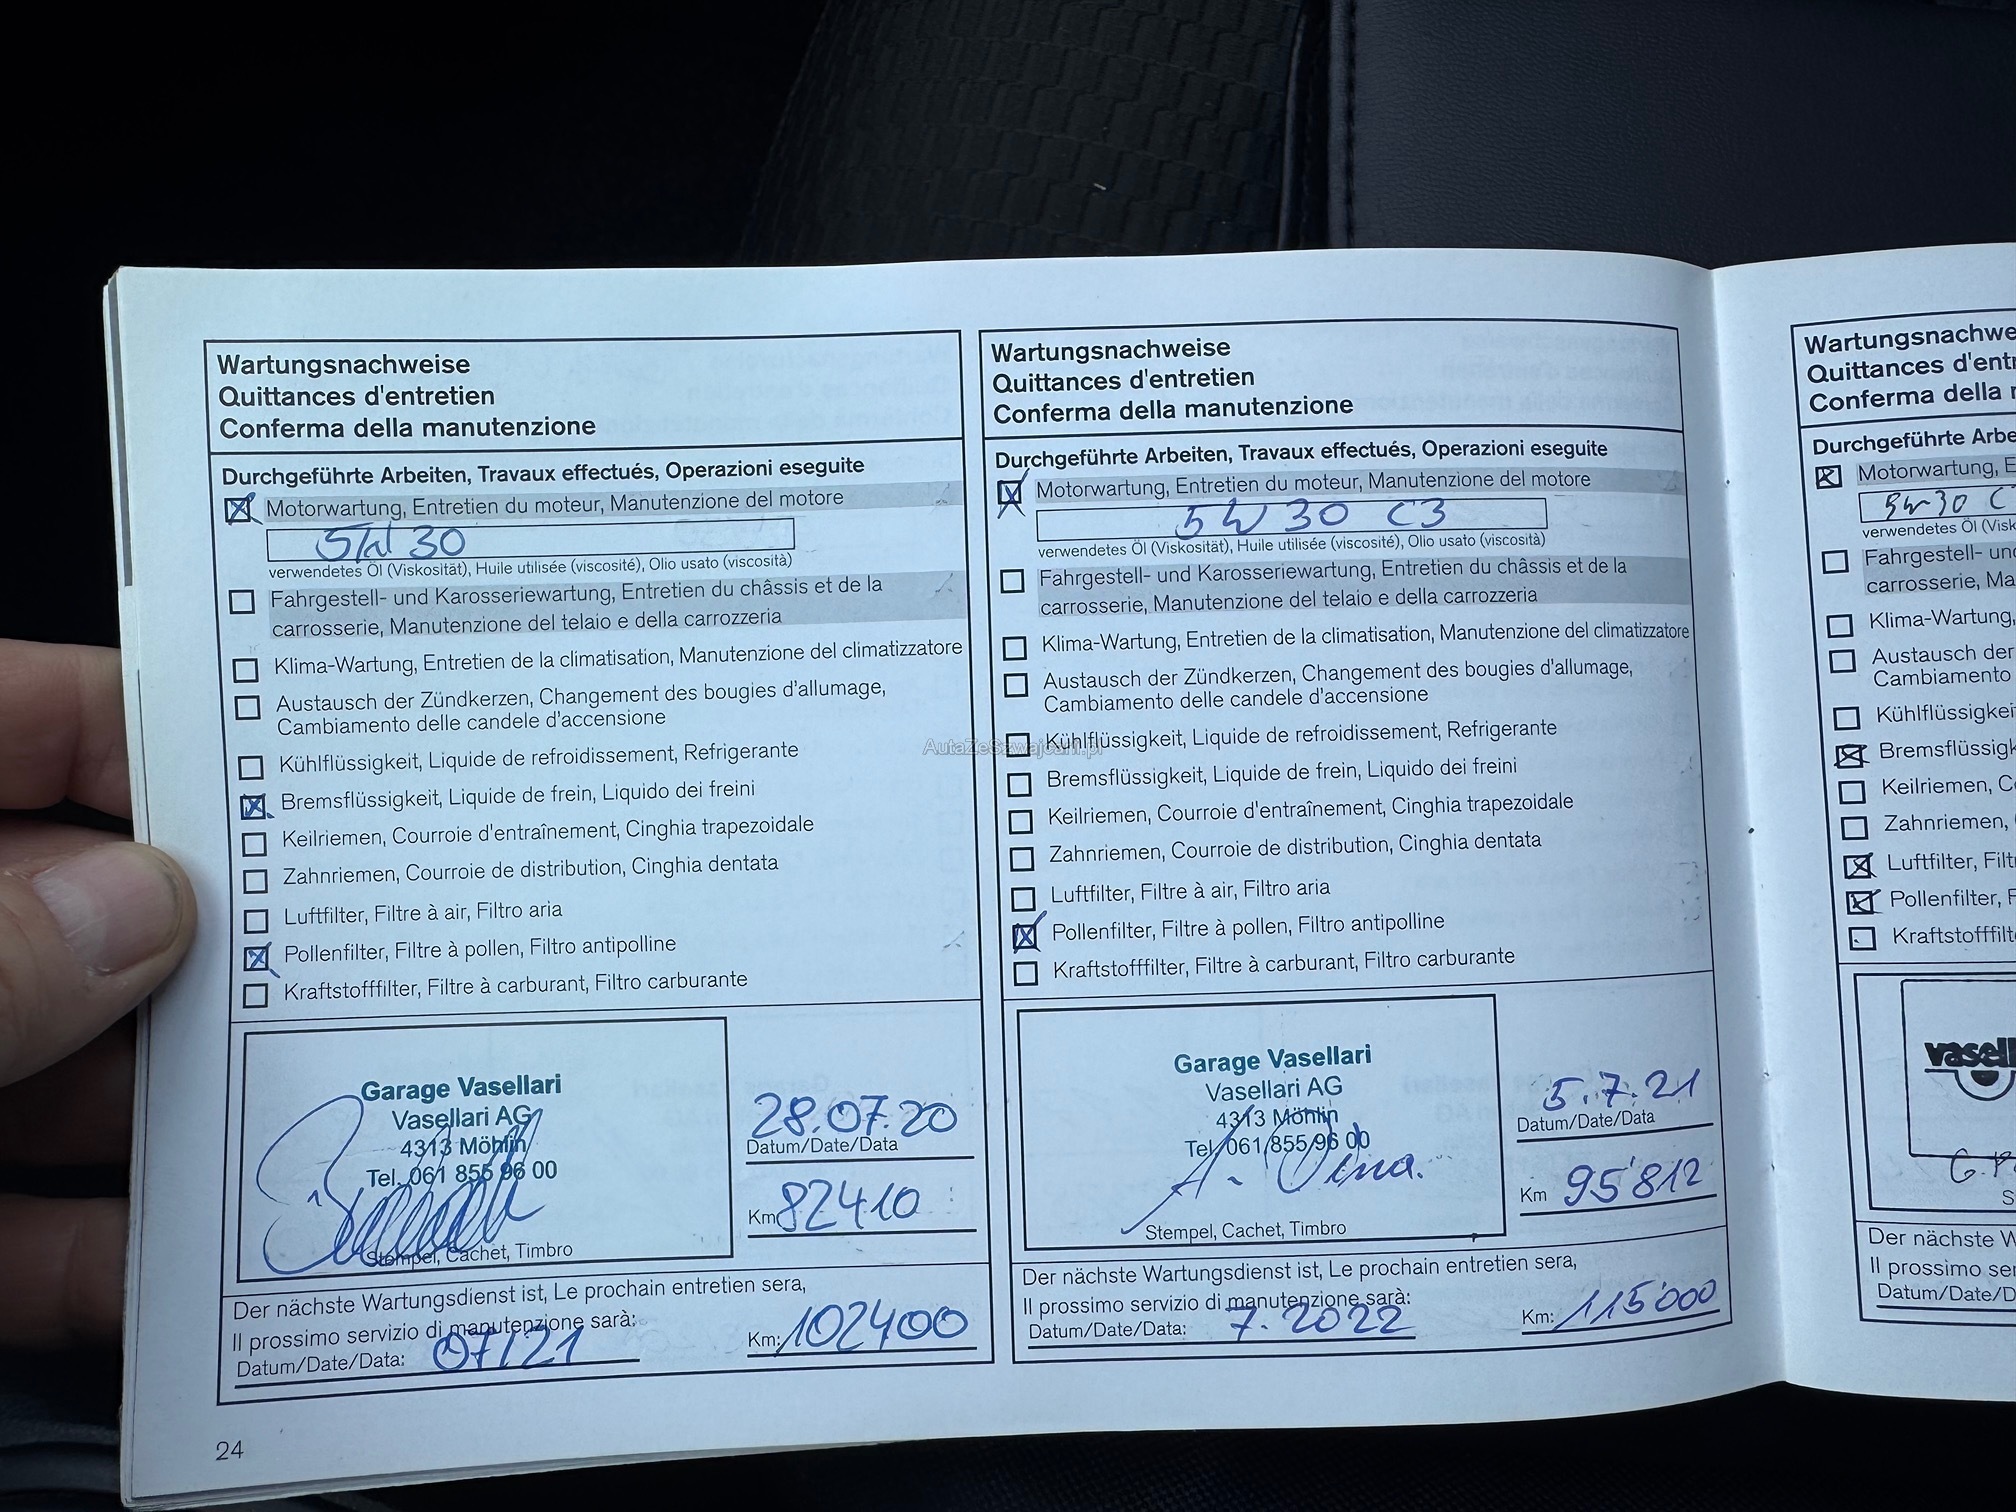 Wartungsnachweise
Quittances d'entretien
Conferma della manutenzione
Durchgeführte Arbeiten, Travaux effectués, Operazioni eseguite
Motorwartung, Entretien du moteur, Manutenzione del motore
5W 30
verwendetes Öl (Viskosität), Huile utilisée (viscosité), Olio usato (viscosità)
Fahrgestell- und Karosseriewartung, Entretien du châssis et de la
carrosserie, Manutenzione del telaio e della carrozzeria
Klima-Wartung, Entretien de la climatisation, Manutenzione del climatizzatore
Austausch der Zündkerzen, Changement des bougies d'allumage,
Cambiamento delle candele d'accensione
Kühlflüssigkeit, Liquide de refroidissement, Refrigerante
Bremsflüssigkeit, Liquide de frein, Liquido dei freini
Keilriemen, Courroie d'entraînement, Cinghia trapezoidale
Zahnriemen, Courroie de distribution, Cinghia dentata
Luftfilter, Filtre à air, Filtro aria
Pollenfilter, Filtre à pollen, Filtro antipolline
Kraftstofffilter, Filtre à carburant, Filtro carburante
Garage Vasellari
Vasellari AG
4313 Möhlin
Tel. 061 855 96 00
Stempel, Cachet, Timbro
28.07.20
Datum/Date/Data
Km 82410
Der nächste Wartungsdienst ist, Le prochain entretien sera,
Il prossimo servizio di manutenzione sarà:
Datum/Date/Data: 07/21
Km: 102400
24
Wartungsnachweise
Quittances d'entretien
Conferma della manutenzione
Durchgeführte Arbeiten, Travaux effectués, Operazioni eseguite
Motorwartung, Entretien du moteur, Manutenzione del motore
5W 30 C3
verwendetes Öl (Viskosität), Huile utilisée (viscosité), Olio usato (viscosità)
Fahrgestell- und Karosseriewartung, Entretien du châssis et de la
carrosserie, Manutenzione del telaio e della carrozzeria
Klima-Wartung, Entretien de la climatisation, Manutenzione del climatizzatore
Austausch der Zündkerzen, Changement des bougies d'allumage,
Cambiamento delle candele d'accensione
Kühlflüssigkeit, Liquide de refroidissement, Refrigerante
Bremsflüssigkeit, Liquide de frein, Liquido dei freini
Keilriemen, Courroie d'entraînement, Cinghia trapezoidale
Zahnriemen, Courroie de distribution, Cinghia dentata
Luftfilter, Filtre à air, Filtro aria
Pollenfilter, Filtre à pollen, Filtro antipolline
Kraftstofffilter, Filtre à carburant, Filtro carburante
Garage Vasellari
Vasellari AG
4313 Möhlin
Tel. 061 855 96 00
Stempel, Cachet, Timbro
5.7.21
Datum/Date/Data
Km 95'812
Der nächste Wartungsdienst ist, Le prochain entretien sera,
Il prossimo servizio di manutenzione sarà:
Datum/Date/Data: 7.2022
Km: 115'000
AutaZeSzwajcarii.pl
Wartungsnachwe
Quittances d'ent
Conferma della
Durchgeführte Arbe
Motorwartung, E
5W30 C
verwendetes Öl (Visk
Fahrgestell- und
carrosserie, Ma
Klima-Wartung,
Austausch der
Cambiamento
Kühlflüssigkei
Bremsflüssigk
Keilriemen, C
Zahnriemen,
Luftfilter, Filt
Pollenfilter, F
Kraftstofffilt
vasell
S
Der nächste W
Il prossimo ser
Datum/Date/D